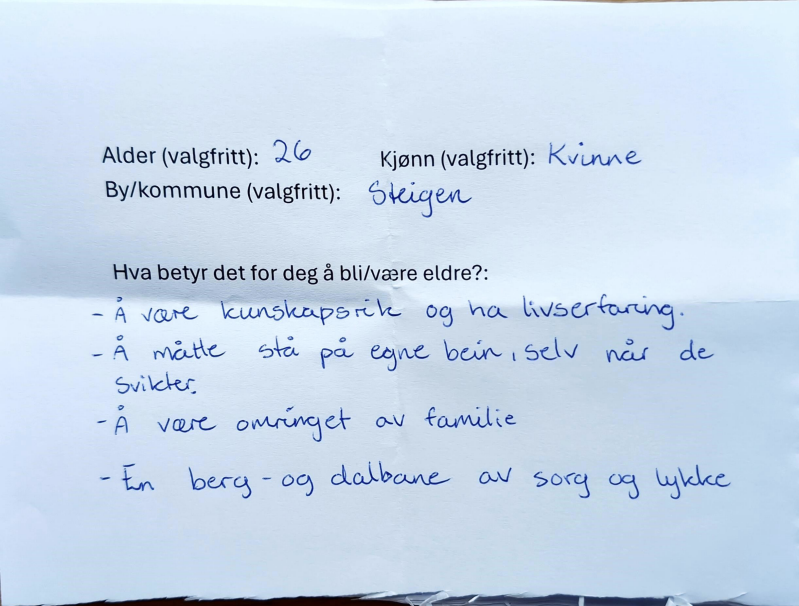 Alder (valgfritt): 26 Kjønn (valgfritt): Kvinne
By/kommune (valgfritt): Steigen
Hva betyr det for deg å bli/være eldre?:
- Å være kunskapsrik og ha livserfaring.
- Å måtte stå på egne bein, selv når de
svikter.
- Å være omringet av familie
- En berg-og dalbane av sorg og lykke